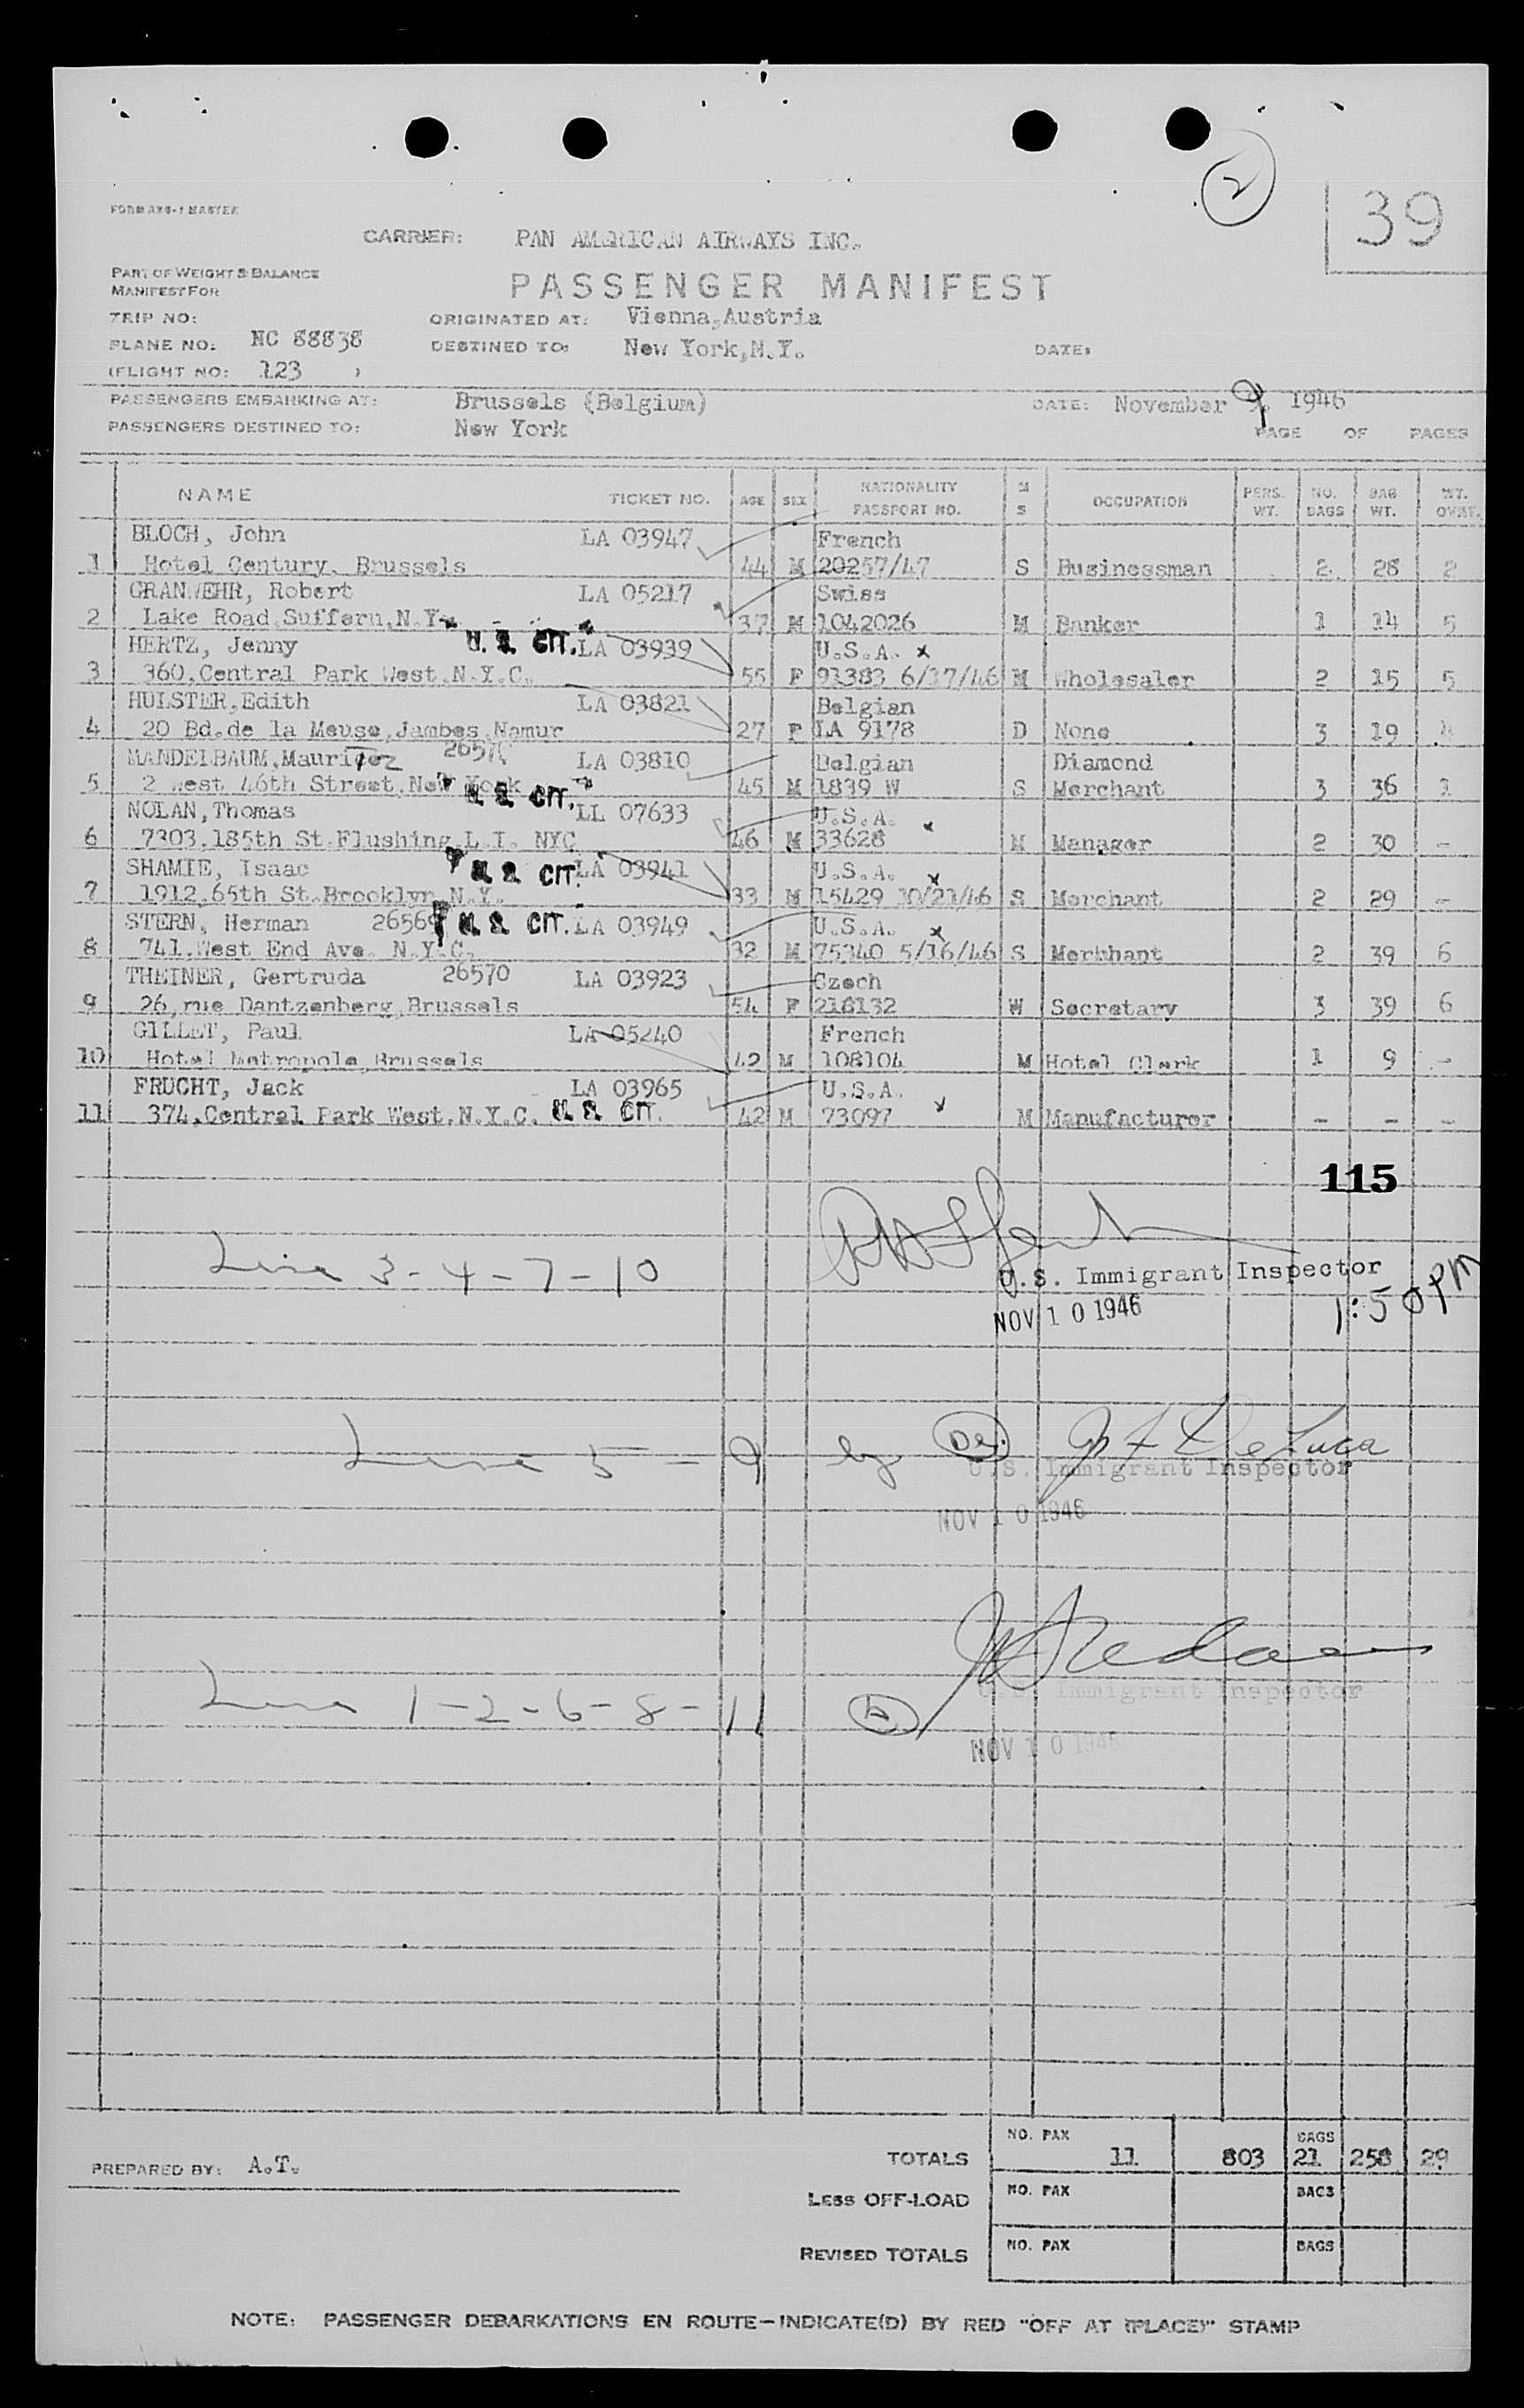 2
39
FORM AXS-1 MASTER
CARRIER: PAN AMERICAN AIRWAYS INC.
PART OF WEIGHT & BALANCE
MANIFEST FOR
PASSENGER MANIFEST
TRIP NO: ORIGINATED AT: Vienna,Austria
PLANE NO: NC 88838 DESTINED TO: New York,N.Y. DATE:
(FLIGHT NO: 123 )
PASSENGERS EMBARKING AT: Brussels (Belgium) DATE: November 9, 1946
PASSENGERS DESTINED TO: New York PAGE OF PAGES
NAME TICKET NO. AGE SEX NATIONALITY PASSPORT NO. M S OCCUPATION PERS. WT. NO. BAGS BAG WT. WT. OVWT.
BLOCH, John LA 03947 French
1 Hotel Century. Brussels 44 M 20257/47 S Businessman 2 28 2
GRANWEHR, Robert LA 05217 Swiss
2 Lake Road.Suffern,N.Y. 37 M 1042026 M Banker 1 14 5
HERTZ, Jenny U. S. CIT. LA 03939 U.S.A. x
3 360,Central Park West.N.Y.C. 55 F 91383 6/17/46 M Wholesaler 2 15 5
HULSTER,Edith LA 03821 Belgian
4 20 Bd.de la Meuse,Jambes,Namur 27 F LA 9178 D None 3 19
MANDELBAUM,Maurice 26571 LA 03810 Belgian Diamond
5 2 West 46th Street,New York 45 M 1839 W S Merchant 3 36 1
NOLAN,Thomas U. S. CIT. LL 07633 U.S.A. x
6 7303,185th St.Flushing,L.I. NYC 46 M 33628 M Manager 2 30 -
SHAMIE, Isaac U. S. CIT. LA 03941 U.S.A. x
7 1912,65th St.Brooklyn,N.Y. 33 M 15429 10/21/46 S Merchant 2 29 -
STERN, Herman 26569 U. S. CIT. LA 03949 U.S.A. x
8 741.West End Ave. N.Y.C. 32 M 75340 5/16/46 S Merbhant 2 39 6
THEINER, Gertruda 26570 LA 03923 Czech
9 26,rue Dantzenberg,Brussels 54 F 218132 W Secretary 3 39 6
GILLET, Paul LA 05240 French
10 Hotel Metropole,Brussels 42 M 108104 M Hotel Clerk 1 9 -
FRUCHT, Jack LA 03965 U.S.A.
11 374,Central Park West.N.Y.C. U. S. CIT. 42 M 73097 M Manufacturer - - -
115
Line 3-4-7-10
U.S. Immigrant Inspector
NOV 10 1946 1:50 PM
Line 5 - 9 by De Luca
U.S. Immigrant Inspector
NOV 10 1946
Line 1-2-6-8-11
U.S. Immigrant Inspector
NOV 10 1946
PREPARED BY: A.T. TOTALS NO. PAX 11 803 BAGS 21 258 29
LESS OFF-LOAD NO. PAX BAGS
REVISED TOTALS NO. PAX BAGS
NOTE: PASSENGER DEBARKATIONS EN ROUTE—INDICATE(D) BY RED "OFF AT (PLACE)" STAMP